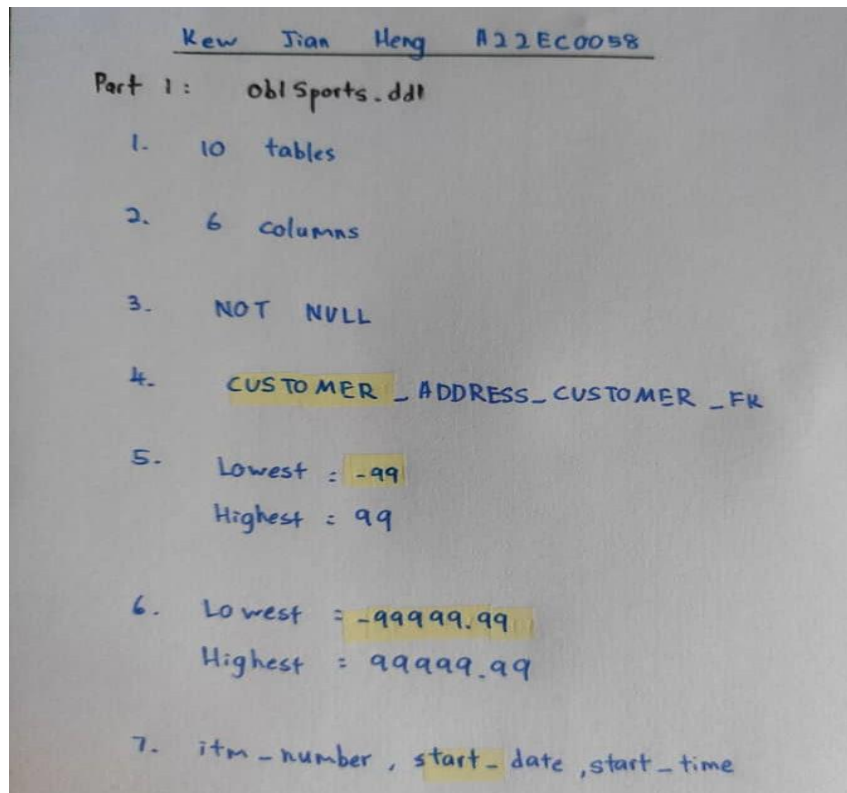 Kew Jian Heng A22EC0058
Part 1: oblSports.ddl
1. 10 tables
2. 6 columns
3. NOT NULL
4. CUSTOMER_ADDRESS_CUSTOMER_FK
5. Lowest : -99
Highest : 99
6. Lowest : -99999.99
Highest : 99999.99
7. itm_number, start_date, start_time